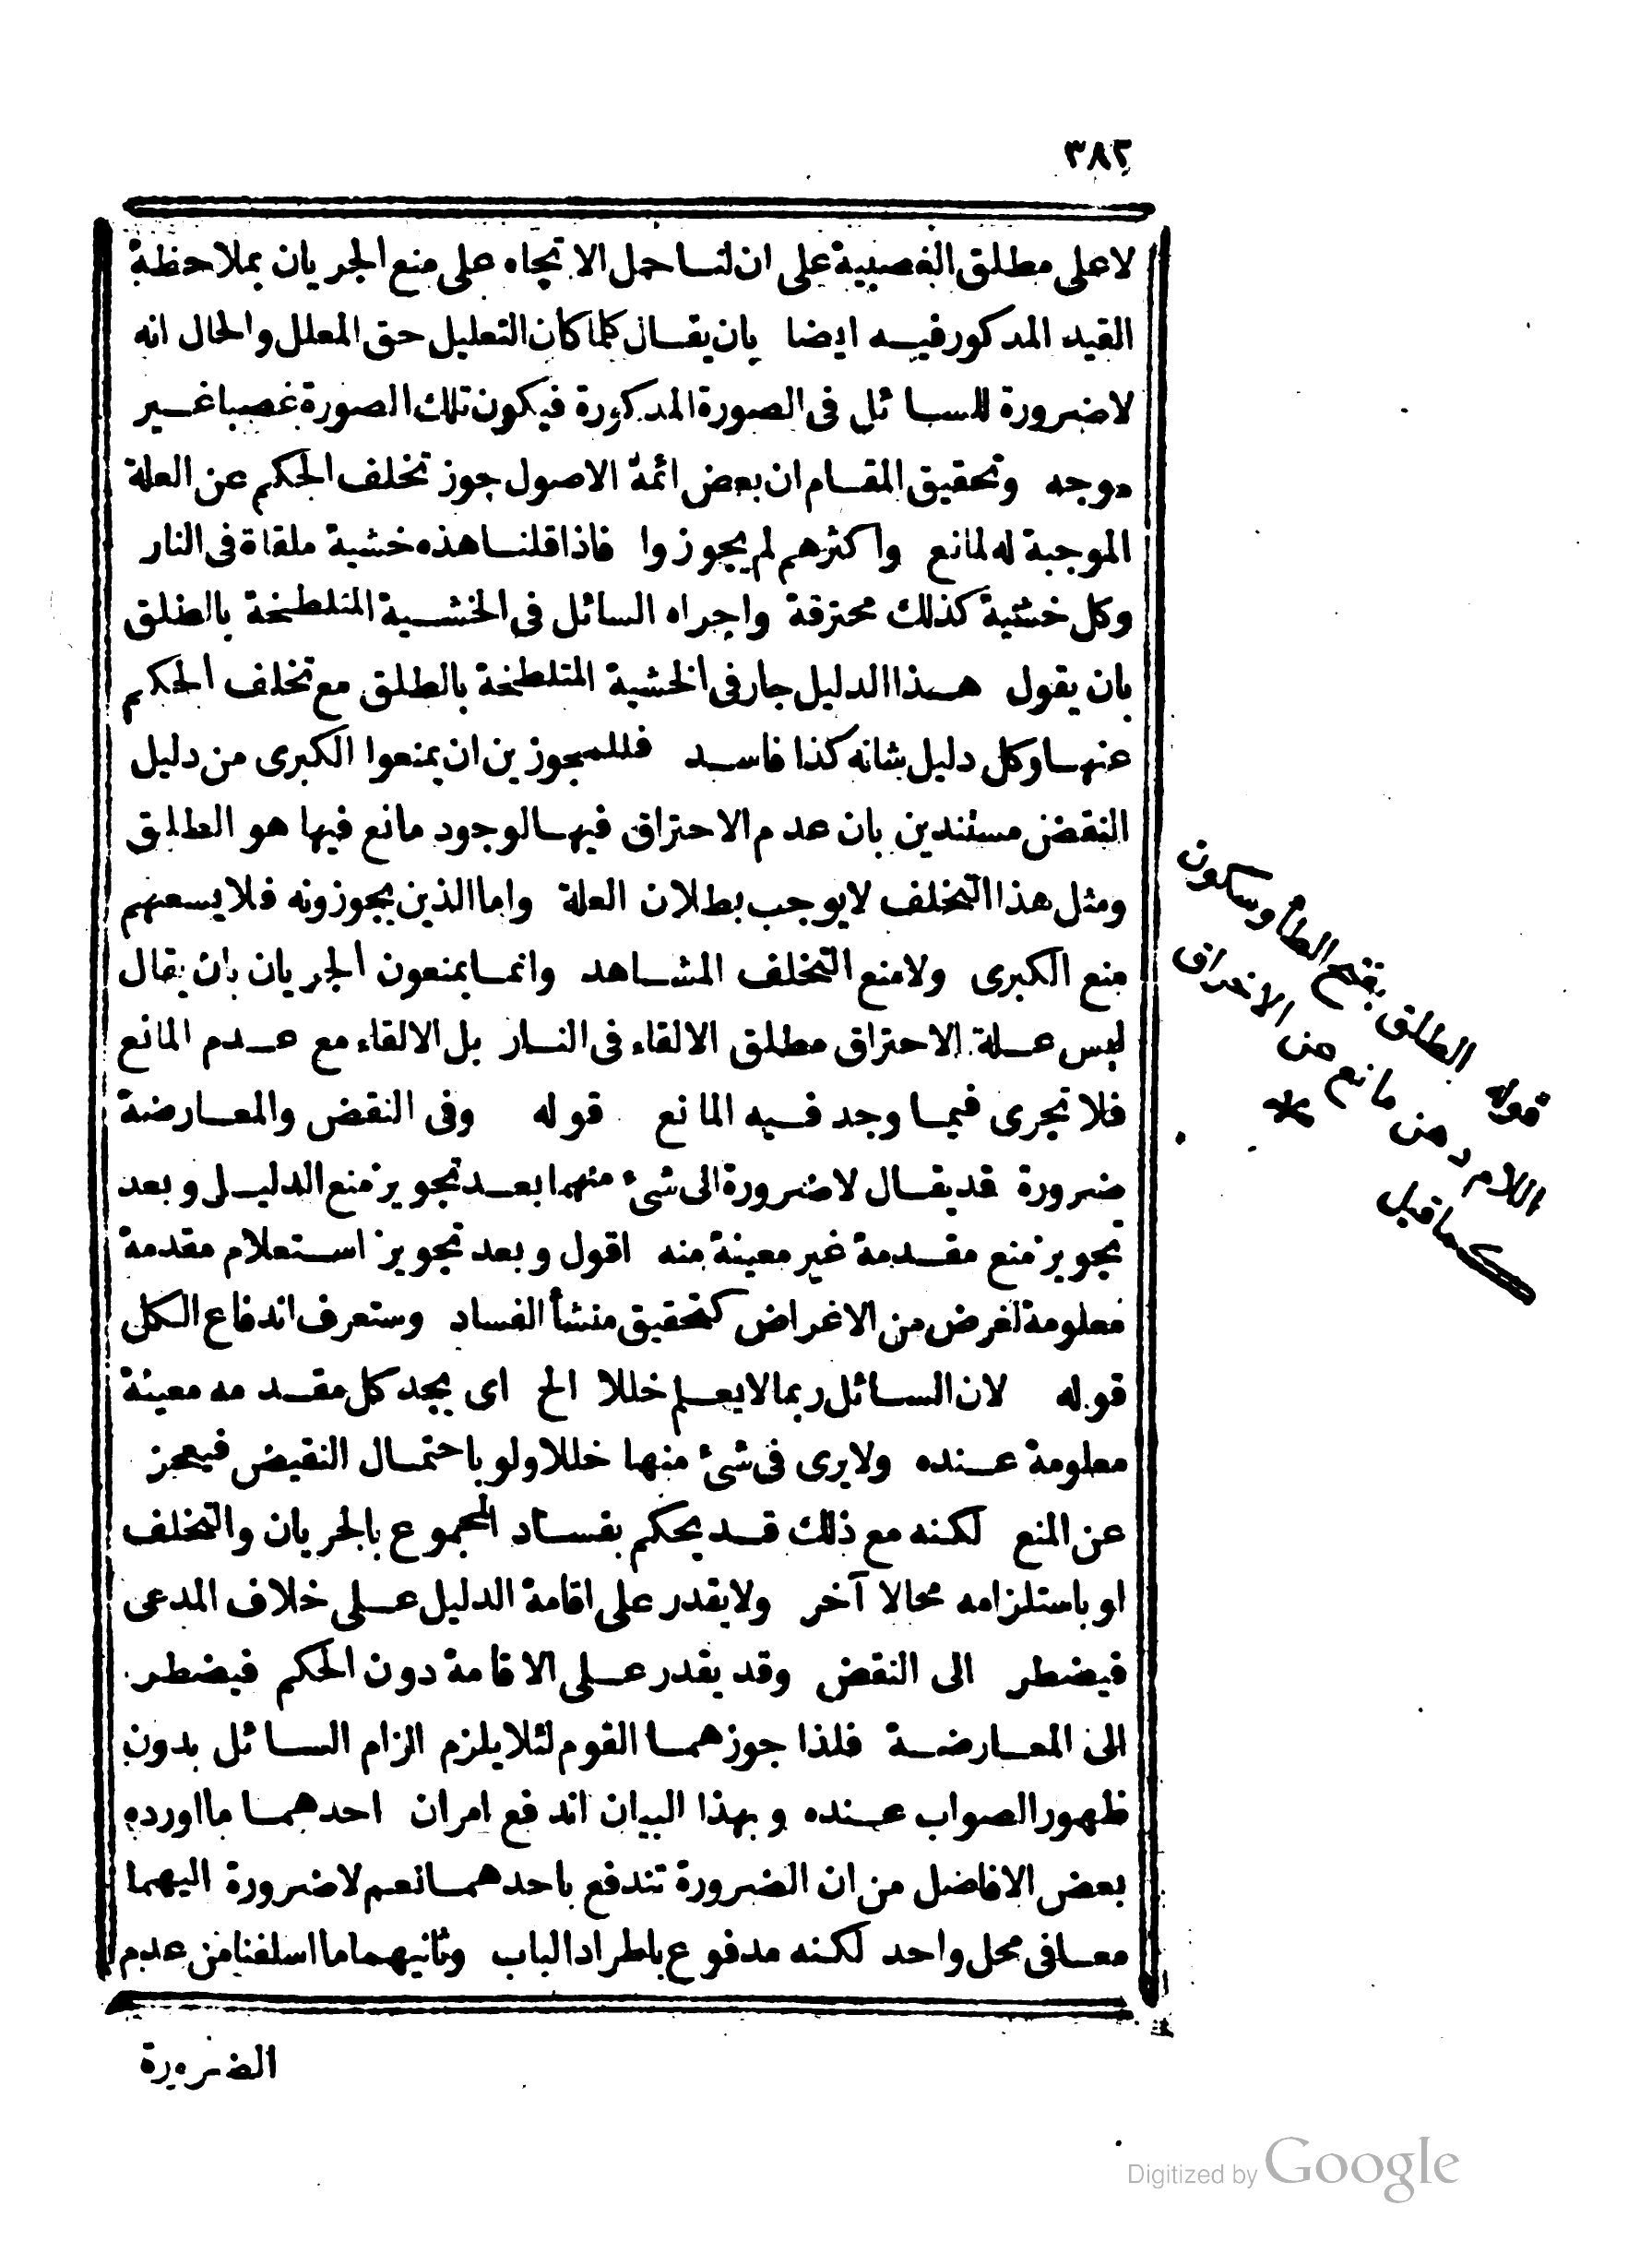 ٣٨٢
لا على مطلق الغصبية على ان لنا حمل الاتجاه على منع الجريان بملاحظة
القيد المذكور فيه ايضا بان يقال كلما كان التعليل حق المعلل والحال انه
لا ضرورة للسائل فى الصورة المذكورة فيكون تلك الصورة غصبا غير
موجه وتحقيق المقام ان بعض ائمة الاصول جوز تخلف الحكم عن العلة
الموجبة له لمانع واكثرهم لم يجوزوا فاذا قلنا هذه خشبة ملقاة فى النار
وكل خشبة كذلك محترقة واجراه السائل فى الخشبة المتلطخة بالطلق
بان يقول هذا الدليل جار فى الخشبة المتلطخة بالطلق مع تخلف الحكم
عنها وكل دليل شانه كذا فاسد فللمجوزين ان يمنعوا الكبرى من دليل
النقض مستندين بان عدم الاحتراق فيها لوجود مانع فيها هو الطلق
ومثل هذا التخلف لا يوجب بطلان العلة واما الذين يجوزونه فلا يسعهم
منع الكبرى ولا منع التخلف المشاهد وانما يمنعون الجريان بان يقال
ليس علة الاحتراق مطلق الالقاء فى النار بل الالقاء مع عدم المانع
فلا تجرى فيما وجد فيه المانع قوله وفى النقض والمعارضة
ضرورة قد يقال لا ضرورة الى شئ منهما بعد تجويز منع الدليل وبعد
تجويز منع مقدمة غير معينة منه اقول وبعد تجويز استعلام مقدمة
معلومة لغرض من الاغراض كتحقيق منشأ الفساد وستعرف اندفاع الكل
قوله لان السائل ربما لا يعلم خللا الخ اى يجد كل مقدمه معينة
معلومة عنده ولا يرى فى شئ منها خللا ولو باحتمال النقيض فيعجز
عن المنع لكنه مع ذلك قد يحكم بفساد المجموع بالجريان والتخلف
او باستلزامه محالا آخر ولا يقدر على اقامة الدليل على خلاف المدعى
فيضطر الى النقض وقد يقدر على الاقامة دون الحكم فيضطر
الى المعارضة فلذا جوزهما القوم لئلا يلزم الزام السائل بدون
ظهور الصواب عنده وبهذا البيان اندفع امران احدهما ما اورده
بعض الافاضل من ان الضرورة تندفع باحدهما نعم لا ضرورة اليهما
معا فى محل واحد لكنه مدفوع باطراد الباب وثانيهما ما اسلفنا من عدم
الضرورة
قوله الطلق بفتح الطأ وسكون
اللام دهن مانع من الاحتراق
كما قيل *
Digitized by Google